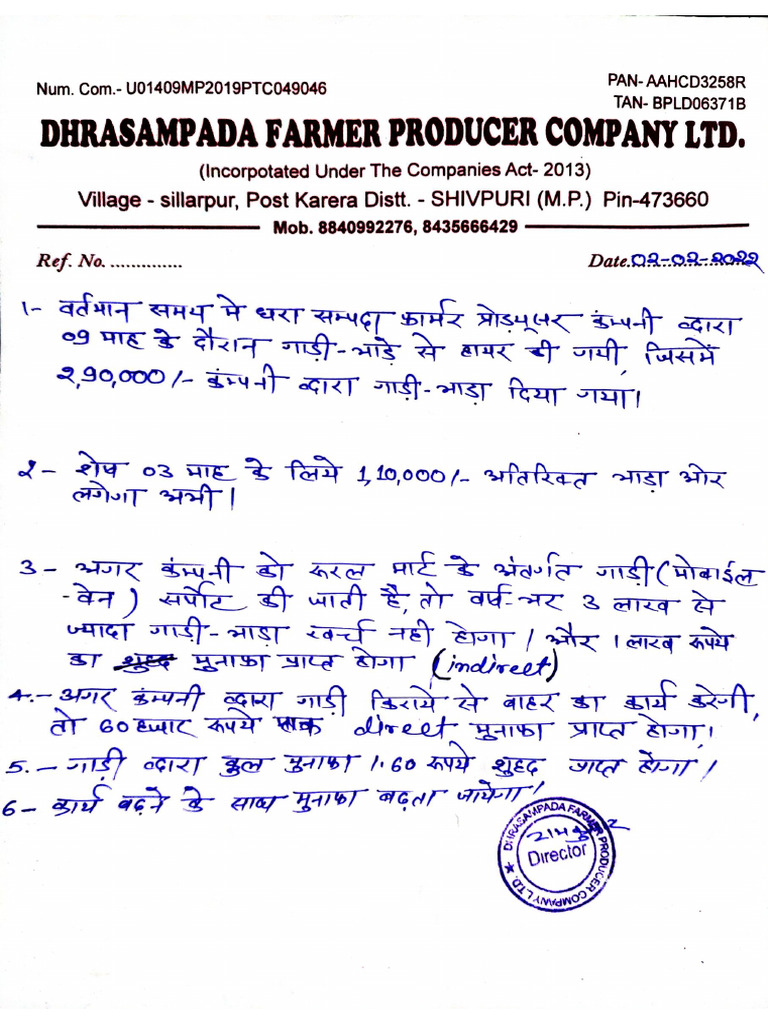 Num. Com.- U01409MP2019PTC049046
PAN- AAHCD3258R
TAN- BPLD06371B
DHRASAMPADA FARMER PRODUCER COMPANY LTD.
(Incorpotated Under The Companies Act- 2013)
Village - sillarpur, Post Karera Distt. - SHIVPURI (M.P.) Pin-473660
Mob. 8840992276, 8435666429
Ref. No. .............. Date.02-02-2022
1- वर्तमान समय मे धरा सम्पदा फार्मर प्रोड़यूसर कंम्पनी व्दारा
09 माह के दौरान गाड़ी-भाड़े से हायर की गयी, जिसमें
2,90,000/- कंम्पनी व्दारा गाड़ी-भाड़ा दिया गया।
2- शेष 03 माह के लिये 1,10,000/- अतिरिक्त भाड़ा ओर
लगेगा अभी।
3- अगर कंम्पनी को रूरल मार्ट के अंतर्गत गाड़ी (मोबाईल
-वेन) सर्पोट की जाती है, तो वर्ष-भर 3 लाख से
ज्यादा गाड़ी-भाड़ा खर्च नही होगा। और 1लाख रूपये
का मुनाफा प्राप्त होगा (indirect)
4.- अगर कंम्पनी व्दारा गाड़ी किराये से बाहर का कार्य करेगी,
तो 60 हजार रूपये direct मुनाफा प्राप्त होगा।
5.- गाड़ी व्दारा कुल मुनाफा 1.60 रूपये शुहद प्राप्त होगा।
6- कार्य बढ़ने के साथ मुनाफा बढ़ता जायेगा।
DHRASAMPADA FARMER PRODUCER COMPANY LTD.
Director